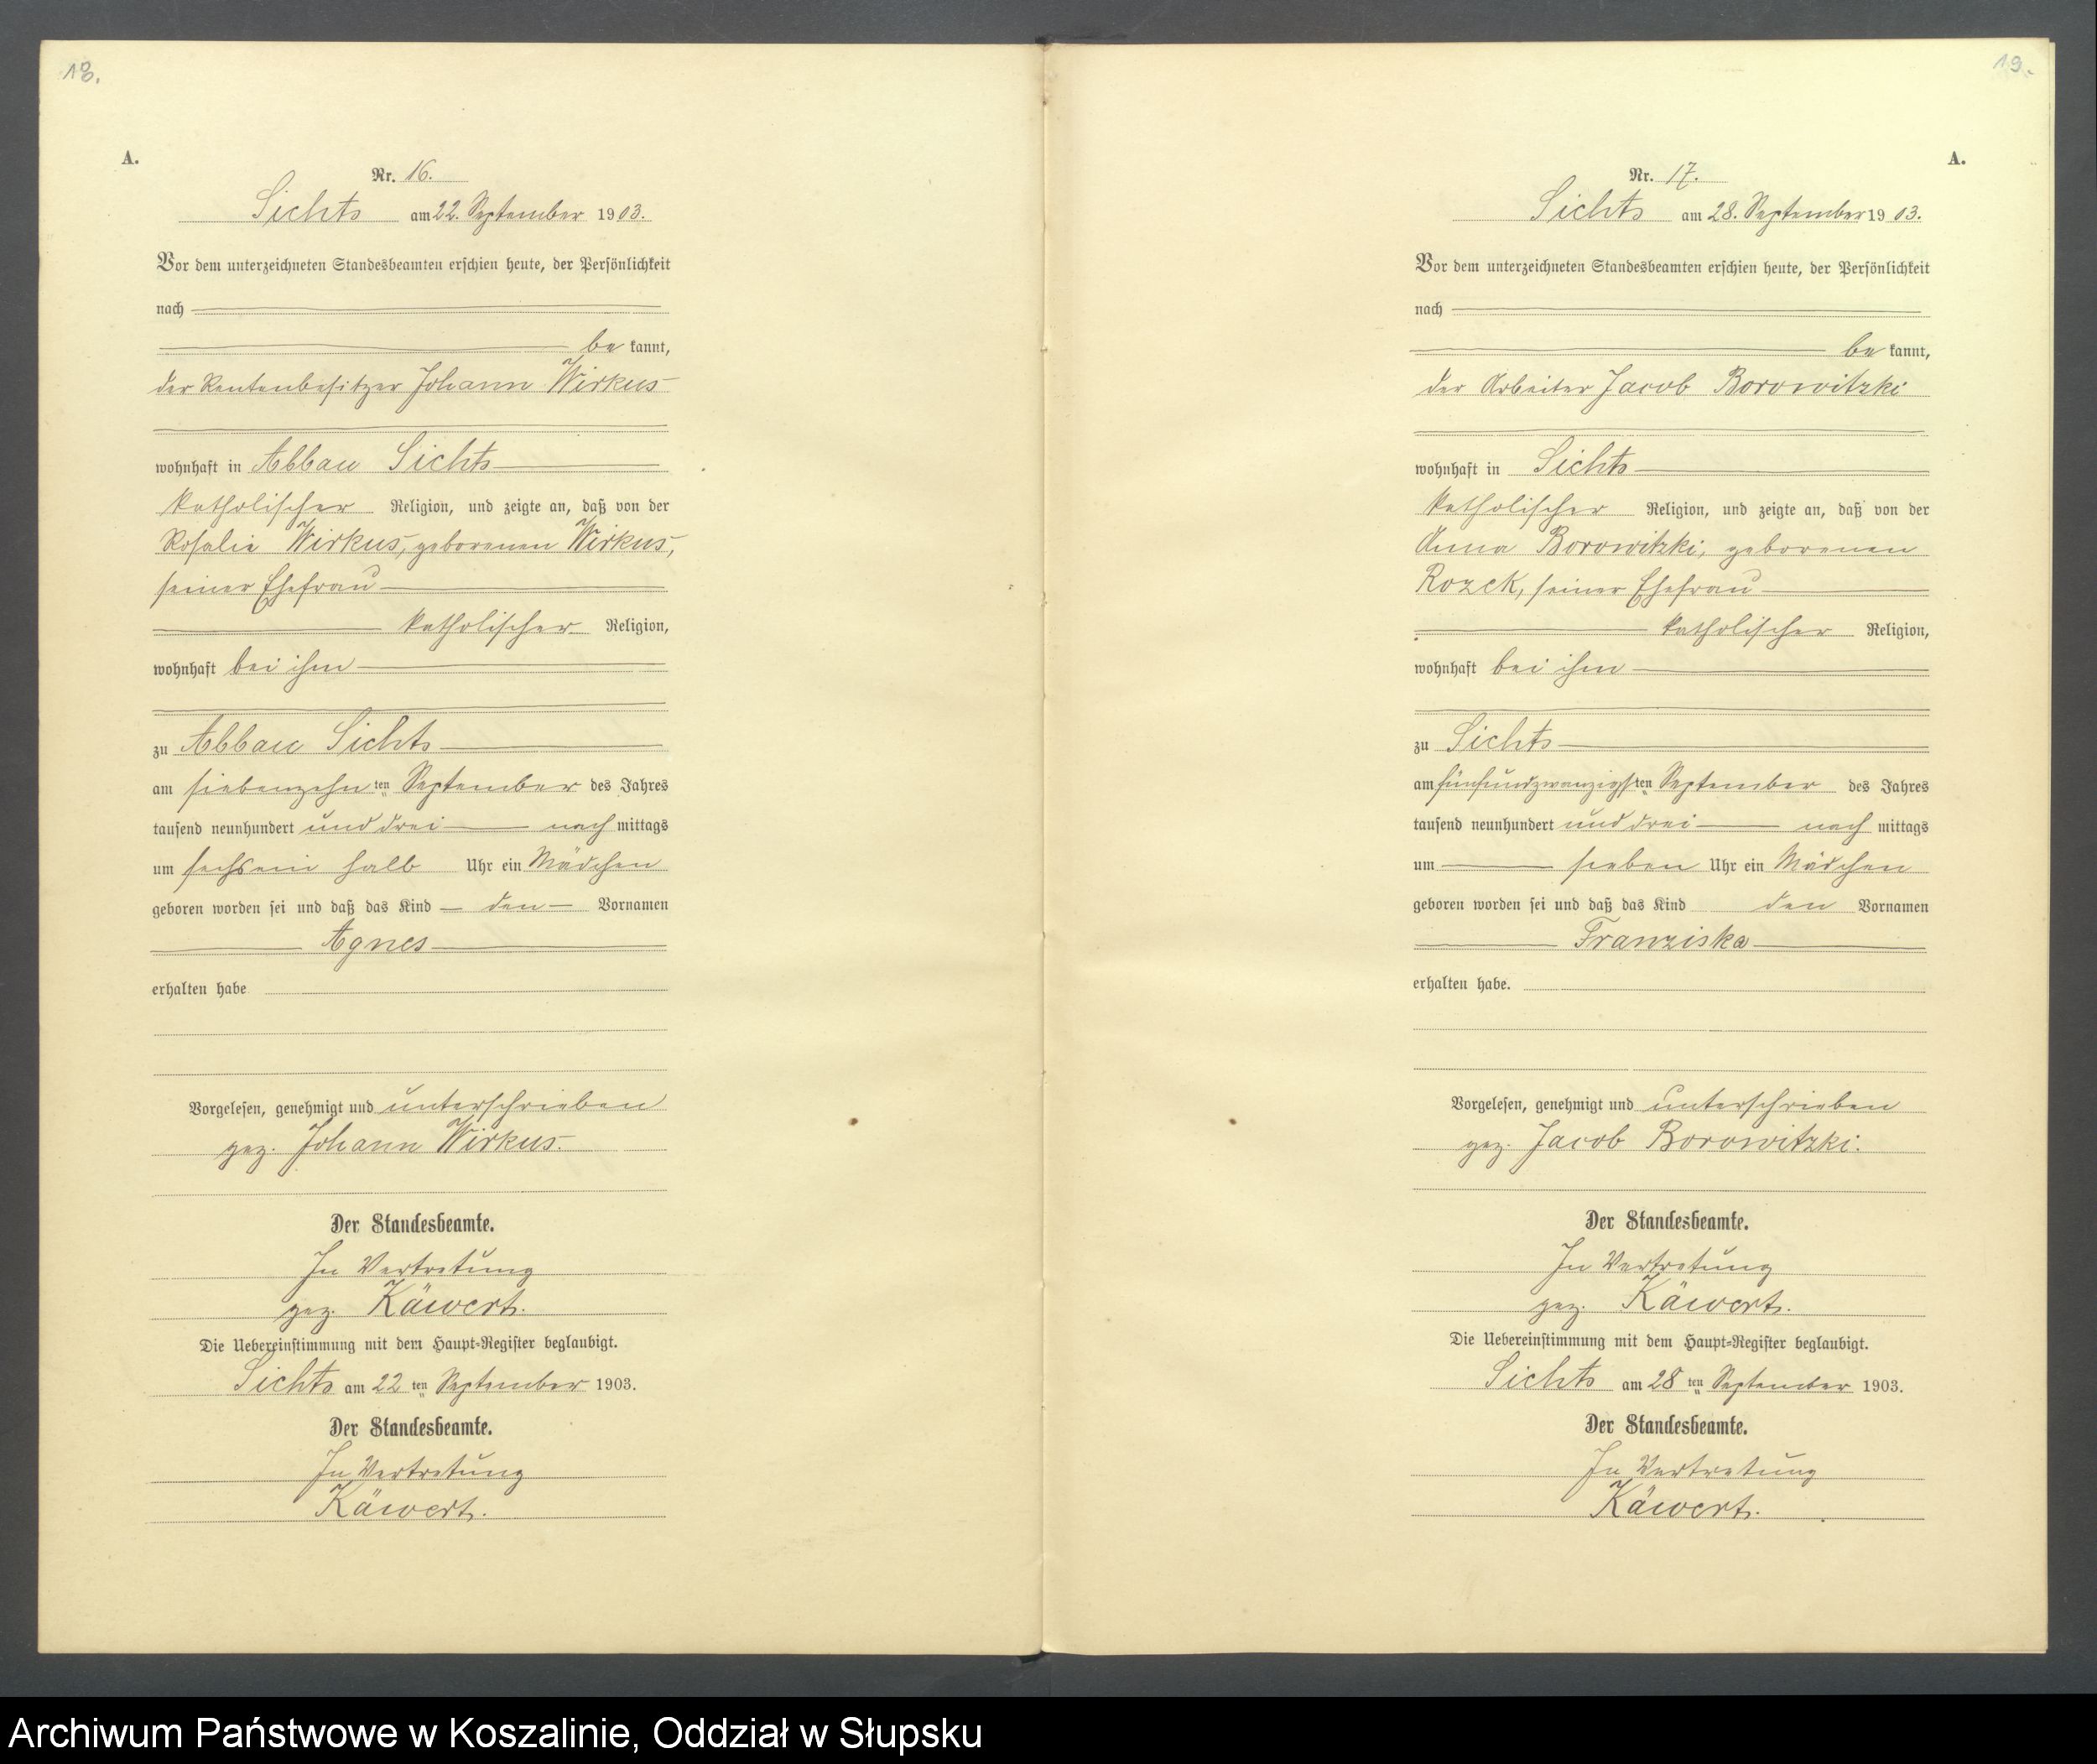 18.
A.
Nr. 16.
Sichts am 22. September 1903.
Vor dem unterzeichneten Standesbeamten erschien heute, der Persönlichkeit
nach
be kannt,
der Rentenbesitzer Johann Wirkus
wohnhaft in Abbau Sichts
katholischer Religion, und zeigte an, daß von der
Rosalie Wirkus, geborenen Wirkus,
seiner Ehefrau
katholischer Religion,
wohnhaft bei ihm
zu Abbau Sichts
am siebenzehn ten September des Jahres
tausend neunhundert und drei nach mittags
um sechsein halb Uhr ein Mädchen
geboren worden sei und daß das Kind den Vornamen
Agnes
erhalten habe
Vorgelesen, genehmigt und unterschrieben
gez. Johann Wirkus.
Der Standesbeamte.
In Vertretung
gez. Käwert.
Die Uebereinstimmung mit dem Haupt-Register beglaubigt.
Sichts am 22 ten September 1903.
Der Standesbeamte.
In Vertretung
Käwert.
19.
A.
Nr. 17.
Sichts am 28. September 1903.
Vor dem unterzeichneten Standesbeamten erschien heute, der Persönlichkeit
nach
be kannt,
der Arbeiter Jacob Borowitzki
wohnhaft in Sichts
katholischer Religion, und zeigte an, daß von der
Anna Borowitzki, geborenen
Rozek, seiner Ehefrau
katholischer Religion,
wohnhaft bei ihm
zu Sichts
am fünfundzwanzigsten September des Jahres
tausend neunhundert und drei nach mittags
um sieben Uhr ein Mädchen
geboren worden sei und daß das Kind den Vornamen
Franziska
erhalten habe.
Vorgelesen, genehmigt und unterschrieben
gez. Jacob Borowitzki.
Der Standesbeamte.
In Vertretung
gez. Käwert.
Die Uebereinstimmung mit dem Haupt-Register beglaubigt.
Sichts am 28 ten September 1903.
Der Standesbeamte.
In Vertretung
Käwert.
Archiwum Państwowe w Koszalinie, Oddział w Słupsku